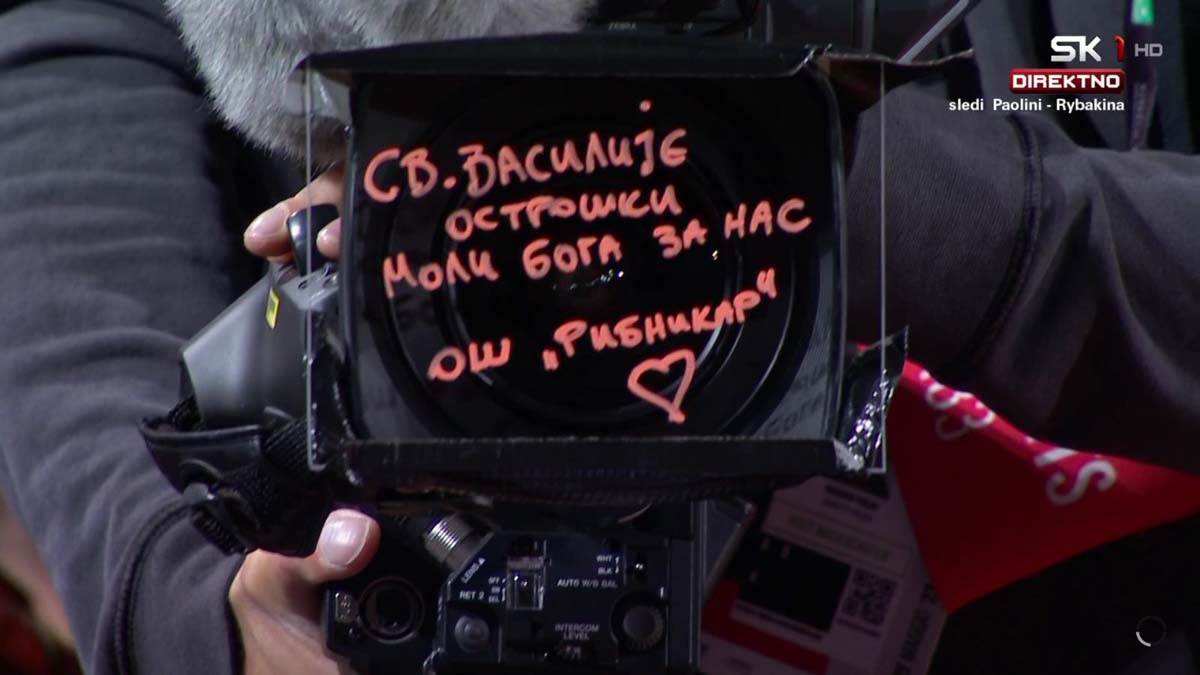 SK 1 HD
DIREKTNO
sledi Paolini - Rybakina
СВ. ВАСИЛИЈЕ
ОСТРОШКИ
МОЛИ БОГА ЗА НАС
ОШ „РИБНИКАР“
LENS
RET 2
OFF
SEL
WHT
BLK
AUTO W/B BAL
INTERCOM
LEVEL